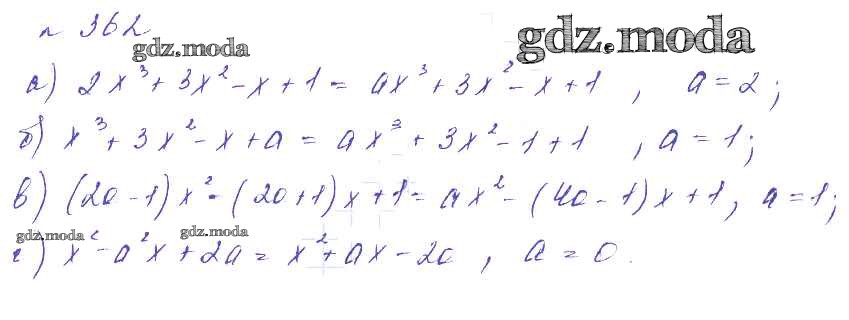 № 362
gdz.moda
gdz.moda
а) 2x³ + 3x² - x + 1 = ax³ + 3x² - x + 1 , a = 2;
б) x³ + 3x² - x + a = ax³ + 3x² - 1 + 1 , a = 1;
в) (2a - 1)x² - (2a + 1)x + 1 = ax² - (4a - 1)x + 1, a = 1;
gdz.moda gdz.moda
г) x² - a²x + 2a = x² + ax - 2a , a = 0.